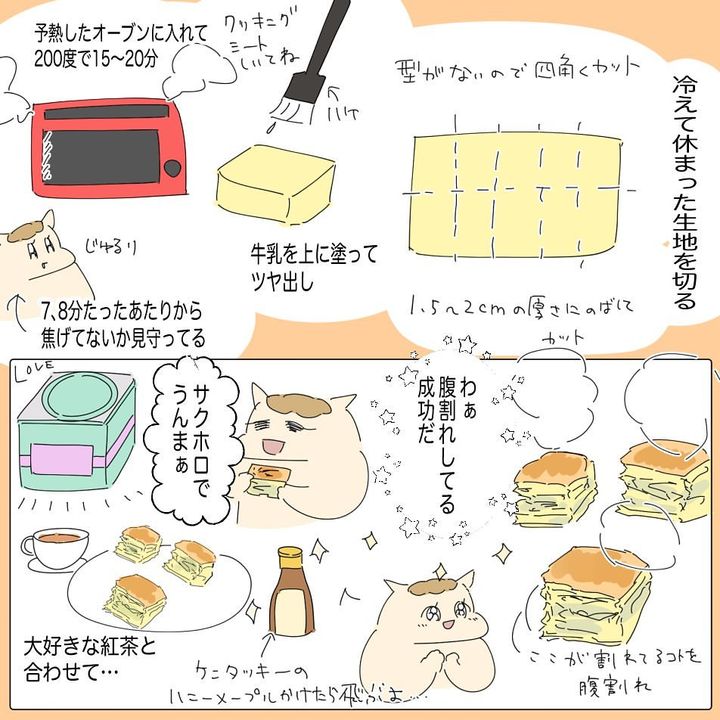 冷えて休まった生地を切る
型がないので四角くカット
1.5~2cmの厚さにのばして
カット
クッキング
シート
しいてね
ハケ
牛乳を上に塗って
ツヤ出し
予熱したオーブンに入れて
200度で15〜20分
じゅるり
7、8分たったあたりから
焦げてないか見守ってる
わぁ
腹割れしてる
成功だ
ここが割れてるコトを
腹割れ
サクホロで
うんまぁ
LOVE
大好きな紅茶と
合わせて…
ケンタッキーの
ハニーメープルかけたら飛ぶよ…